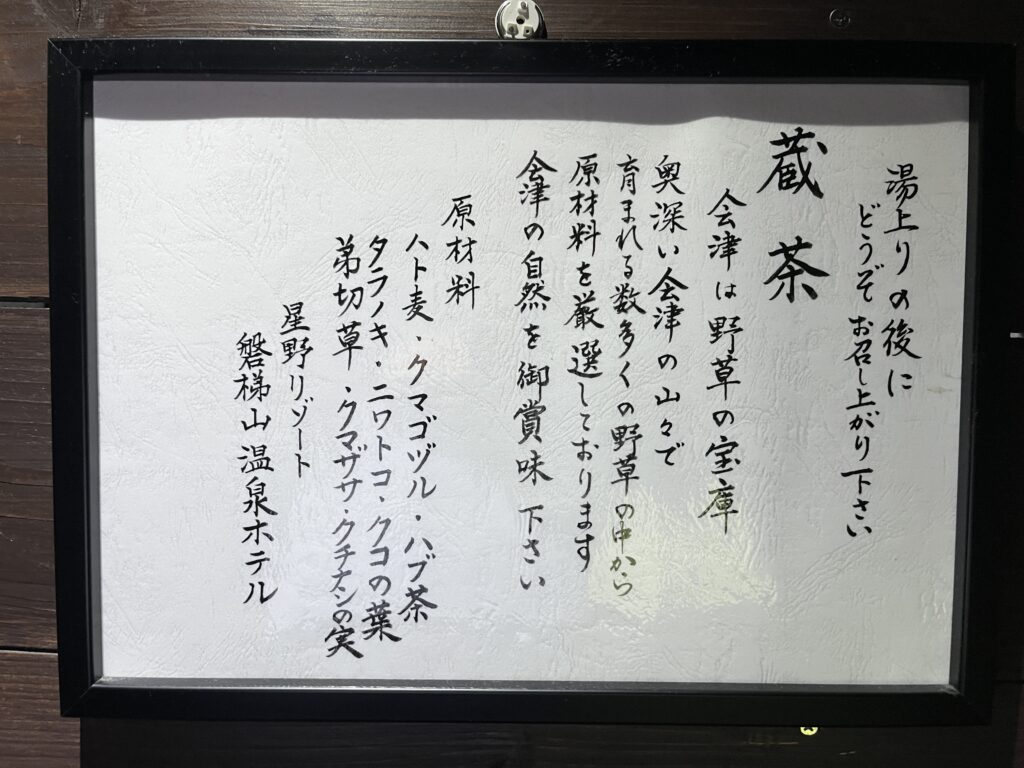 湯上りの後に
どうぞお召し上がり下さい
蔵茶
会津は野草の宝庫
奥深い会津の山々で
育まれる数多くの野草の中から
原材料を厳選しております
会津の自然を御賞味下さい
原材料
ハト麦・クマゴヅル・ハブ茶
タラノキ・ニワトコ・クコの葉
弟切草・クマザサ・クチナシの実
星野リゾート
磐梯山温泉ホテル